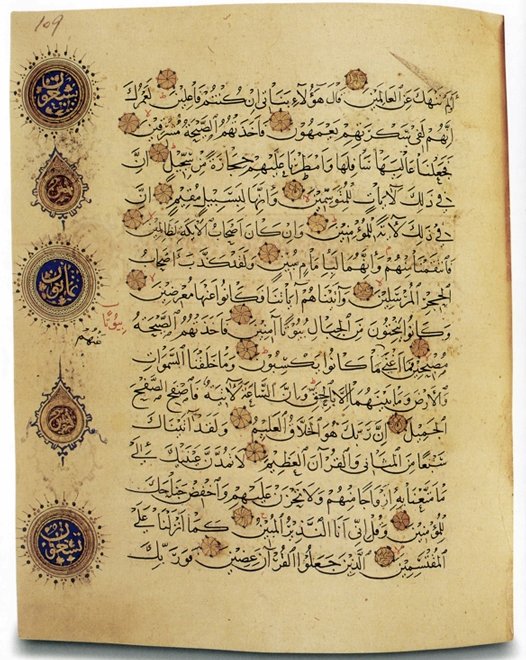 109
أَوَلَمْ نَنْهَكَ عَنِ الْعَالَمِينَ قَالَ هَؤُلَاءِ بَنَاتِي إِنْ كُنْتُمْ فَاعِلِينَ لَعَمْرُكَ
إِنَّهُمْ لَفِي سَكْرَتِهِمْ يَعْمَهُونَ فَأَخَذَتْهُمُ الصَّيْحَةُ مُشْرِقِينَ
فَجَعَلْنَا عَالِيَهَا سَافِلَهَا وَأَمْطَرْنَا عَلَيْهِمْ حِجَارَةً مِنْ سِجِّيلٍ إِنَّ
فِي ذَلِكَ لَآيَاتٍ لِلْمُتَوَسِّمِينَ وَإِنَّهَا لَبِسَبِيلٍ مُقِيمٍ إِنَّ
فِي ذَلِكَ لَآيَةً لِلْمُؤْمِنِينَ وَإِنْ كَانَ أَصْحَابُ الْأَيْكَةِ لَظَالِمِينَ
فَانْتَقَمْنَا مِنْهُمْ وَإِنَّهُمَا لَبِإِمَامٍ مُبِينٍ وَلَقَدْ كَذَّبَ أَصْحَابُ
الْحِجْرِ الْمُرْسَلِينَ وَآتَيْنَاهُمْ آيَاتِنَا فَكَانُوا عَنْهَا مُعْرِضِينَ
وَكَانُوا يَنْحِتُونَ مِنَ الْجِبَالِ بُيُوتًا آمِنِينَ فَأَخَذَتْهُمُ الصَّيْحَةُ
مُصْبِحِينَ فَمَا أَغْنَى مَا كَانُوا يَكْسِبُونَ وَمَا خَلَقْنَا السَّمَوَاتِ
وَالْأَرْضَ وَمَا بَيْنَهُمَا إِلَّا بِالْحَقِّ وَإِنَّ السَّاعَةَ لَآتِيَةٌ فَاصْفَحِ الصَّفْحَ
الْجَمِيلَ إِنَّ رَبَّكَ هُوَ الْخَلَّاقُ الْعَلِيمُ وَلَقَدْ آتَيْنَاكَ
سَبْعًا مِنَ الْمَثَانِي وَالْقُرْآنَ الْعَظِيمَ لَا تَمُدَّنَّ عَيْنَيْكَ إِلَى
مَا مَتَّعْنَا بِهِ أَزْوَاجًا مِنْهُمْ وَلَا تَحْزَنْ عَلَيْهِمْ وَاخْفِضْ جَنَاحَكَ
لِلْمُؤْمِنِينَ وَقُلْ إِنِّي أَنَا النَّذِيرُ الْمُبِينُ كَمَا أَنْزَلْنَا عَلَى
الْمُقْتَسِمِينَ الَّذِينَ جَعَلُوا الْقُرْآنَ عِضِينَ فَوَرَبِّكَ
سبعون
خمس
ثمانون
بيوتا
عنهم
خمس
تسعون